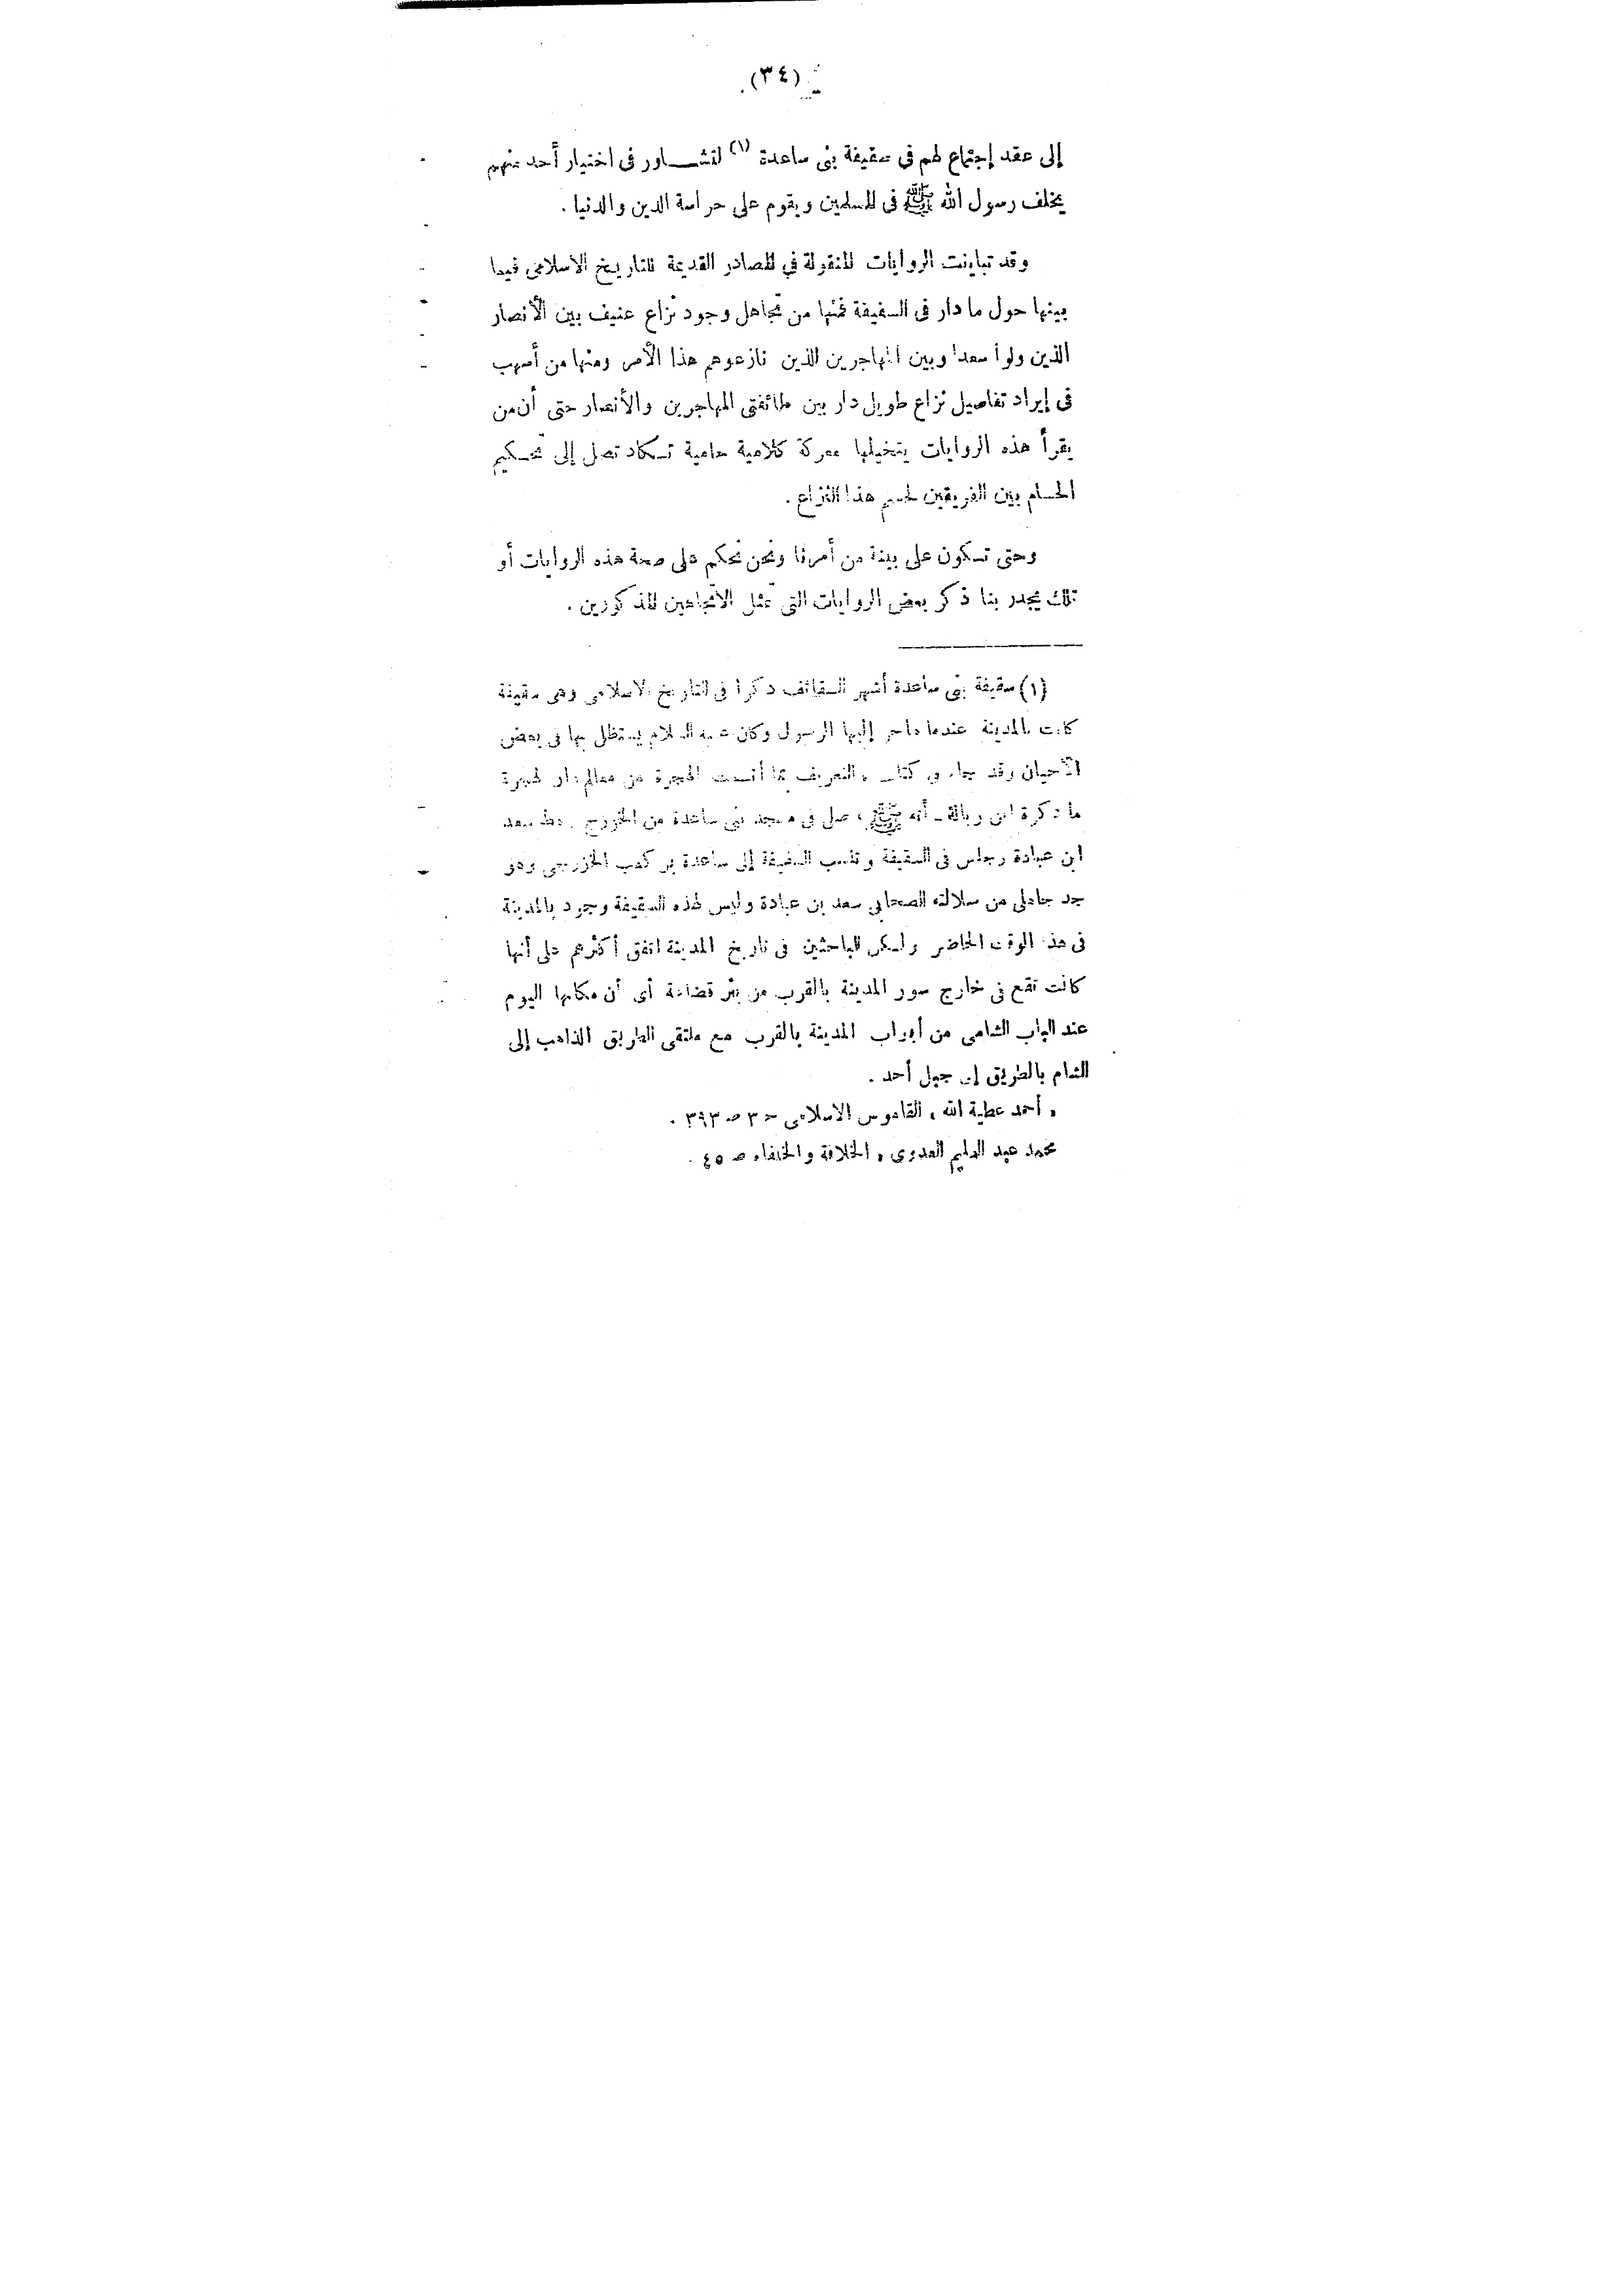 (٣٤)
إلى عقد إجتماع لهم فى سقيفة بنى ساعدة (١) لتشـــاور فى اختيار أحد منهم
يخلف رسول الله ﷺ فى المسلمين ويقوم على حراسة الدين والدنيا .
وقد تباينت الروايات المنقولة في المصادر القديمة للتاريخ الاسلامى فيما
بينها حول ما دار فى السقيفة فمنها من تجاهل وجود نزاع عنيف بين الأنصار
الذين ولوا سعدا وبين المهاجرين الذين نازعوهم هذا الأمر ومنها من أسهب
فى إيراد تفاصيل نزاع طويل دار بين طائفتى المهاجرين والأنصار حتى أن من
يقرأ هذه الروايات يتخيلها معركة كلامية حامية تكاد تصل إلى تحكيم
الحسام بين الفريقين لحسم هذا النزاع .
وحتى تكون على بينة من أمرنا ونحن نحكم على صحة هذه الروايات أو
تلك يجدر بنا ذكر بعض الروايات التى تمثل الاتجاهين المذكورين .
(١) سقيفة بنى ساعدة أشهر السقائف ذكرا فى التاريخ الاسلامى وهى سقيفة
كانت بالمدينة عندما هاجر إليها الرسول وكان عليه السلام يستظل بها فى بعض
الأحيان وقد جاء فى كتاب « التعريف بما أنست الهجرة من معالم دار الهجرة
ما ذكرة ابن زبالة ـ أنه ﷺ ، صلى فى مسجد بنى ساعدة من الخزرج رهط سعد
ابن عبادة وجلس فى السقيفة وتنسب السقيفة إلى ساعدة بن كعب الخزرجى وهو
جد جاهلى من سلالته الصحابى سعد بن عبادة وليس لهذه السقيفة وجود بالمدينة
فى هذا الوقت الحاضر ولكن الباحثين فى تاريخ المدينة اتفق أكثرهم على أنها
كانت تقع فى خارج سور المدينة بالقرب من بئر قضاعة أى أن مكانها اليوم
عند الباب الشامى من أبواب المدينة بالقرب مع ملتقى الطريق الذاهب إلى
الشام بالطريق إلى جبل أحد .
« أحمد عطية الله ، القاموس الاسلامى ح ٣ ص ٣٩٣ .
محمد عبد العليم العدوى ، الخلافة والخلفاء ص ٤٥ .